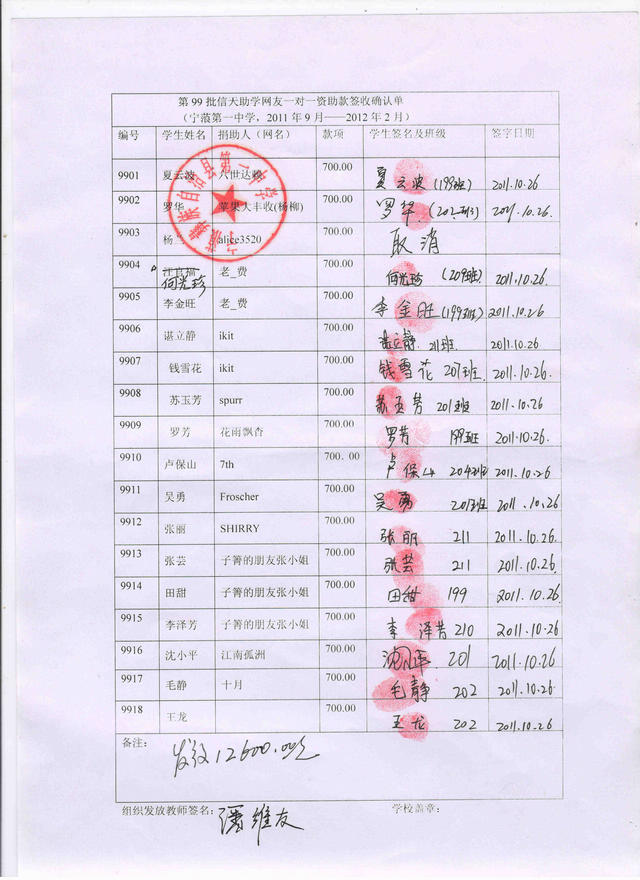 第 99 批信天助学网友一对一资助款签收确认单
（宁蒗第一中学，2011 年 9 月——2012 年 2 月）
编号 学生姓名 捐助人（网名） 款项 学生签名及班级 签字日期
9901 夏云波 八世达赖 700.00 夏云波 (199班) 2011.10.26
9902 罗华 苹果大丰收(杨柳) 700.00 罗华 (202班) 2011.10.26
9903 杨兰 alice3520 700.00 取消
9904 汪官福 老_费 700.00 何光珍 (209班) 2011.10.26
何光珍
9905 李金旺 老_费 700.00 李金旺 (199班) 2011.10.26
9906 谌立静 ikit 700.00 谌立静 211班 2011.10.26
9907 钱雪花 ikit 700.00 钱雪花 207班 2011.10.26
9908 苏玉芳 spurr 700.00 苏玉芳 201班 2011.10.26
9909 罗芳 花雨飘香 700.00 罗芳 199班 2011.10.26
9910 卢保山 7th 700.00 卢保山 204班 2011.10.26
9911 吴勇 Froscher 700.00 吴勇 201班 2011.10.26
9912 张丽 SHIRRY 700.00 张丽 211 2011.10.26
9913 张芸 子箐的朋友张小姐 700.00 张芸 211 2011.10.26
9914 田甜 子箐的朋友张小姐 700.00 田甜 199 2011.10.26
9915 李泽芳 子箐的朋友张小姐 700.00 李泽芳 210 2011.10.26
9916 沈小平 江南孤洲 700.00 沈小平 201 2011.10.26
9917 毛静 十月 700.00 毛静 202 2011.10.26
9918 王龙 700.00 王龙 202 2011.10.26
备注：
发放12600.00元
组织发放教师签名： 潘维友 学校盖章：